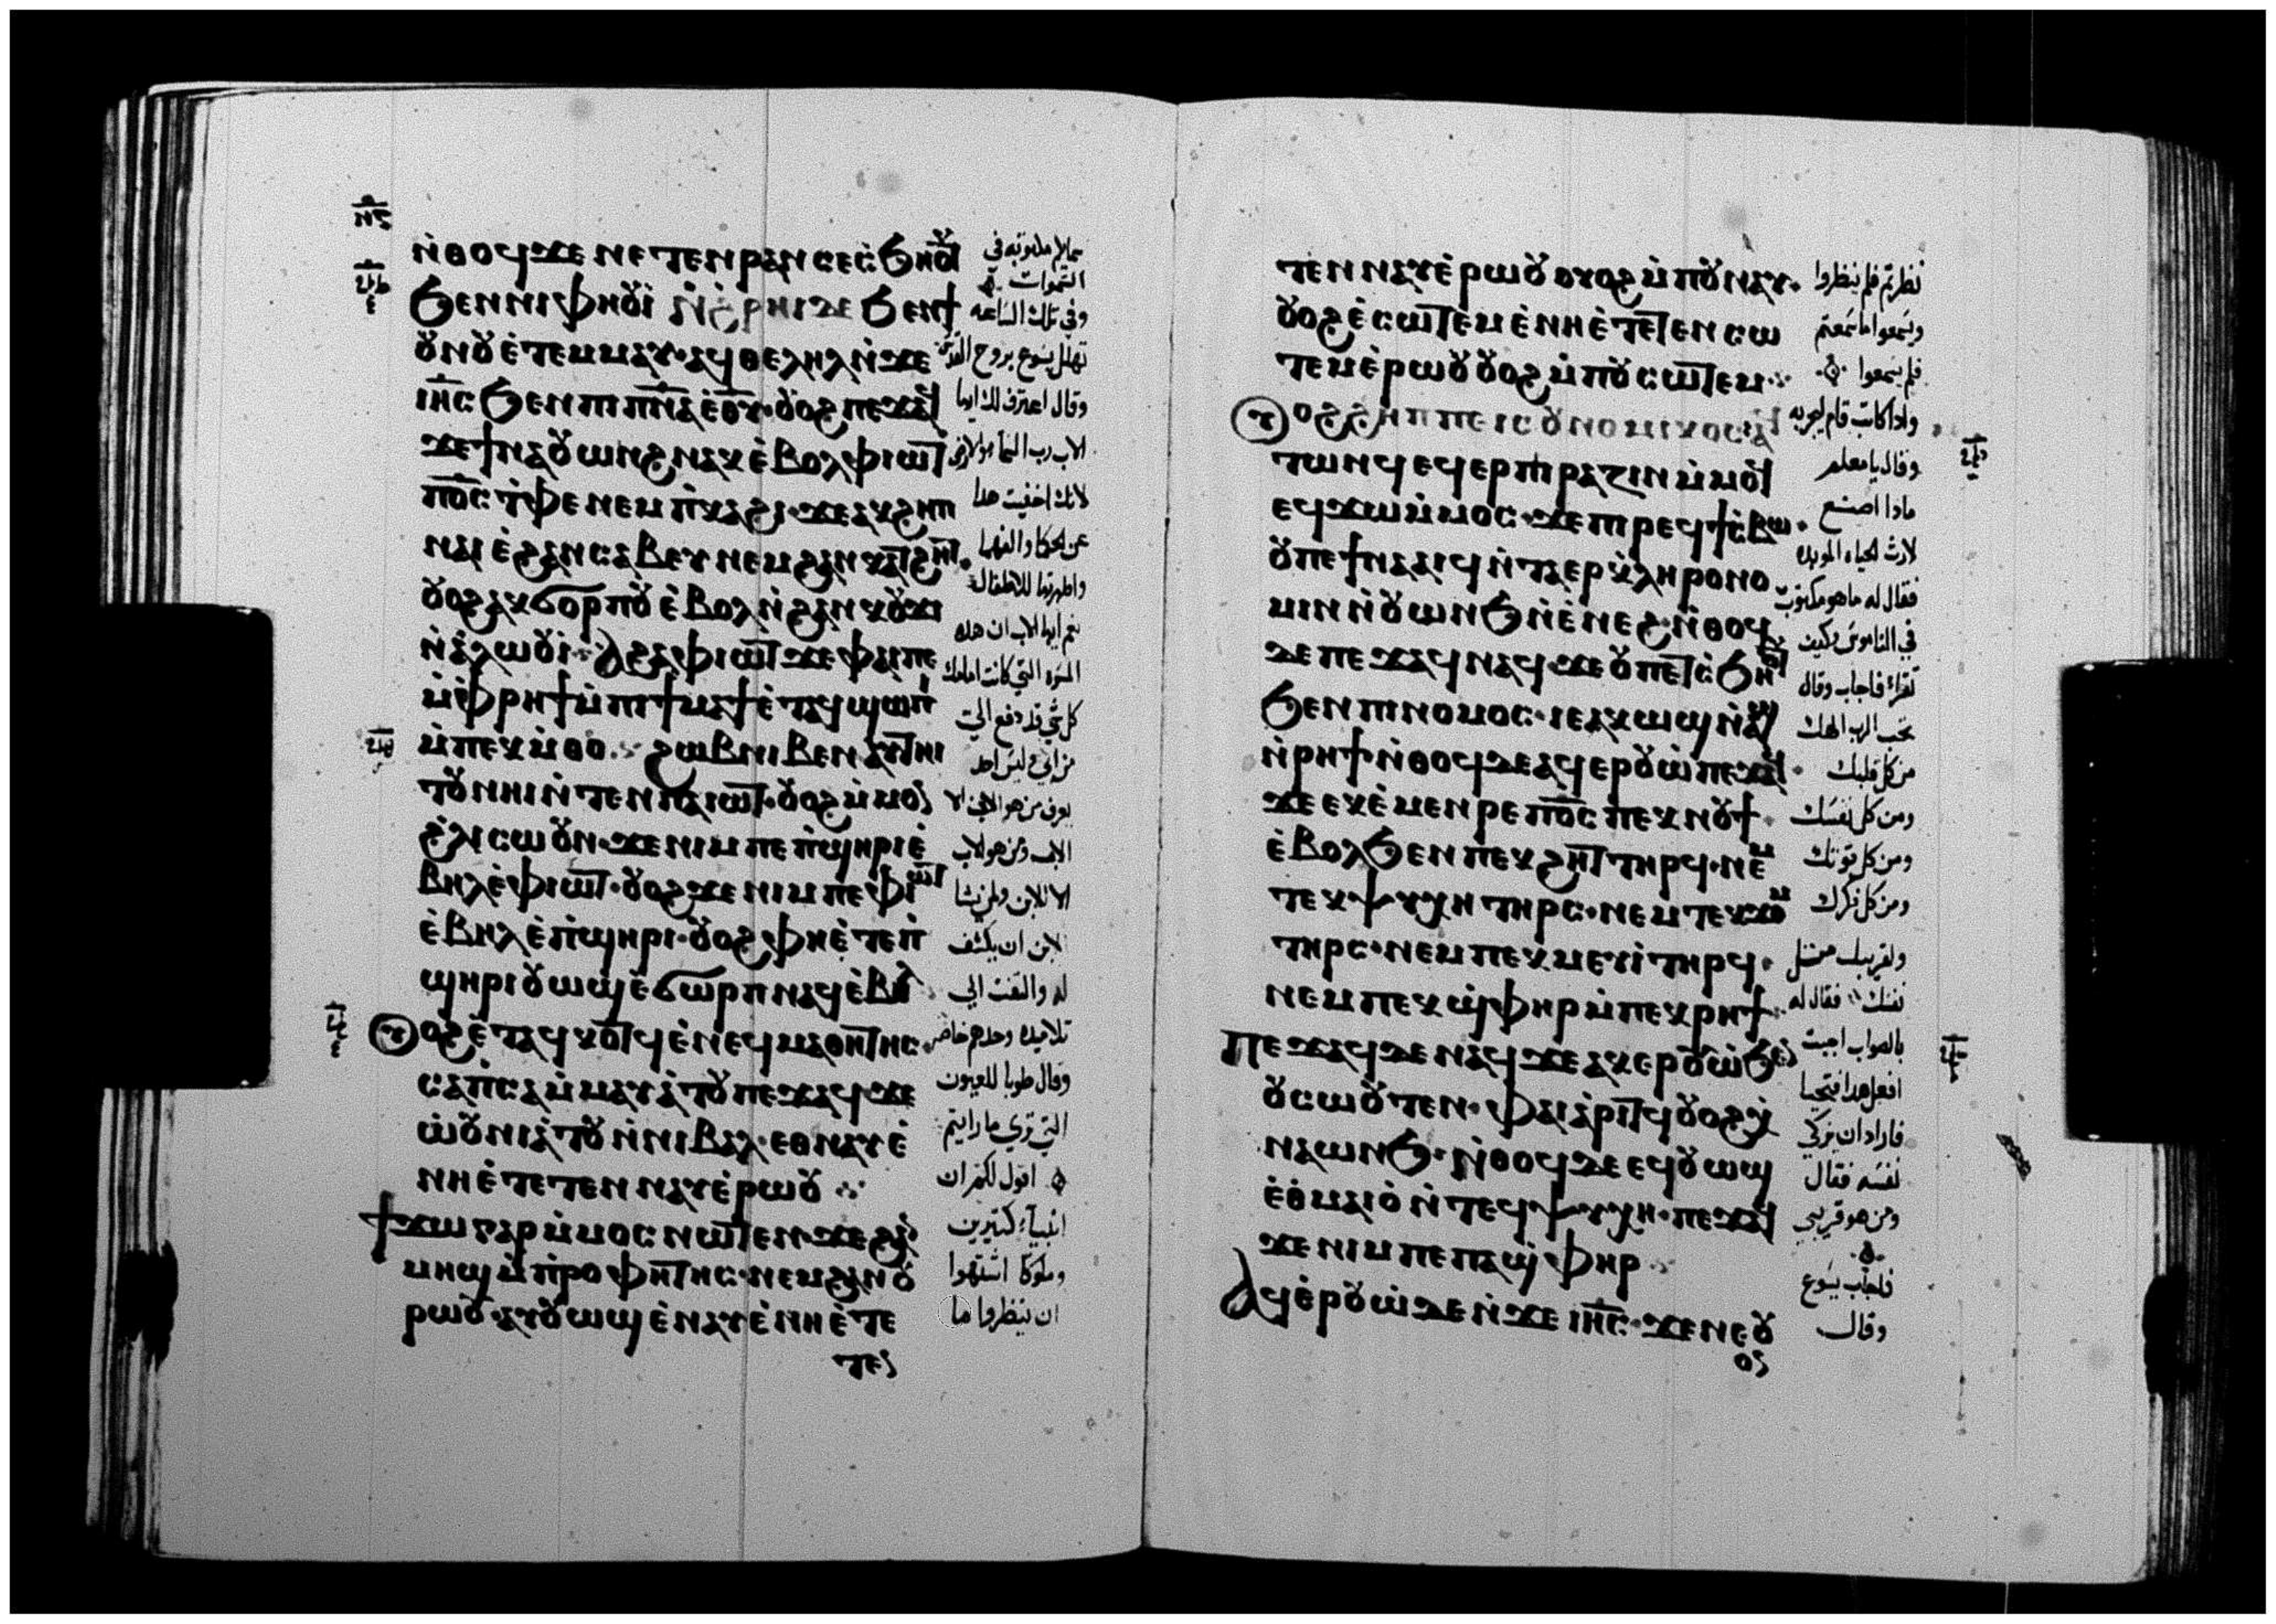 ⲛ̇ⲑⲟϥ ϫⲉ ⲛⲉⲧⲉⲛⲣⲁⲛ ⲥⲉⲥ̇ϧⲏⲟⲩⲧ
ϧⲉⲛⲛⲓⲫⲏⲟⲩⲓ̇ ⲛ̇ϩ̇ⲣⲏⲓ ⲇⲉ ϧⲉⲛϯ
ⲟⲩⲛⲟⲩ ⲉ̇ⲧⲉⲙⲙⲁⲩ· ⲁϥⲑⲉⲗⲏⲗ ⲛ̇ϫⲉ
ⲓⲏ̅ⲥ ϧⲉⲛⲡⲓⲡ̅ⲛ̅ⲁ̅ ⲉ̇ⲑ̅ⲩ̅· ⲟⲩⲟϩ ⲡⲉϫⲁϥ
ϫⲉ ϯⲛⲁⲟⲩⲱⲛϩ ⲛⲁⲕ ⲉ̇ⲃⲟⲗ ⲫⲓⲱⲧ
ⲡⲟ̅ⲥ̅ ⲛ̇ⲧ̇ⲫⲉ ⲛⲉⲙ ⲡ̇ⲕⲁϩⲓ· ϫⲉ ⲁⲕϩⲏⲡ
ⲛⲁⲓ ⲉ̇ϩⲁⲛⲥⲁⲃⲉⲩ ⲛⲉⲙ ϩⲁⲛⲕⲁⲧϩⲏⲧ·
ⲟⲩⲟϩ ⲁⲕϭⲟⲣⲡⲟⲩ ⲉ̇ⲃⲟⲗ ⲛ̇ϩⲁⲛⲕⲟⲩϫⲓ
ⲛ̇ⲁ̇ⲗⲱⲟⲩⲓ̇· ⲁϩⲁ ⲫⲓⲱⲧ ϫⲉ ⲫⲁⲓ ⲡⲉ
ⲙ̇ⲫ̇ⲣⲏϯ ⲙ̇ⲡⲓϯⲙⲁϯ ⲉ̇ⲧⲁϥϣⲱⲡⲓ
ⲙ̇ⲡⲉⲕⲙ̇ⲑⲟ. ϩⲱⲃ ⲛⲓⲃⲉⲛ ⲁⲩⲧⲏⲓ
ⲧⲟⲩ ⲛⲏⲓ ⲛ̇ⲧⲉⲛ ⲡⲁⲓⲱⲧ· ⲟⲩⲟϩ ⲙ̇ⲙⲟⲛ
ϩ̇ⲗⲓ ⲥⲱⲟⲩⲛ· ϫⲉ ⲛⲓⲙ ⲡⲉ ⲡ̇ϣⲏⲣⲓ ⲉ̇
ⲃⲏⲗ ⲉ̇ⲫⲓⲱⲧ· ⲟⲩⲟϩ ϫⲉ ⲛⲓⲙ ⲡⲉ ⲫⲓⲱⲧ
ⲉ̇ⲃⲏⲗ ⲉ̇ⲡ̇ϣⲏⲣⲓ· ⲟⲩⲟϩ ⲫⲏ ⲉ̇ⲧⲉ ⲡ̇
ϣⲏⲣⲓ ⲟⲩⲱϣ ⲉ̇ϭⲱⲣⲡ ⲛⲁϥ ⲉ̇ⲃⲟⲗ
ⲟⲩⲟϩ ⲉ̇ⲧⲁϥⲕⲟⲧϥ ⲉ̇ⲛⲉϥⲙⲁⲑⲏⲧⲏⲥ·
ⲥⲁⲡ̇ⲥⲁ ⲙ̇ⲙⲁⲩⲁ̇ⲧⲟⲩ ⲡⲉϫⲁϥ ϫⲉ
ⲱ̇ⲟⲩⲛⲓⲁ̇ⲧⲟⲩ ⲛ̇ⲛⲓⲃⲁⲗ· ⲉⲑⲛⲁⲩ ⲉ̇
ⲛⲏ ⲉ̇ⲧⲉⲧⲉⲛⲛⲁⲩ ⲉ̇ⲣⲱⲟⲩ
ϯϫⲱ ⲅⲁⲣ ⲙ̇ⲙⲟⲥ ⲛⲱⲧⲉⲛ· ϫⲉ ϩⲁⲛ
ⲙⲏϣ ⲙ̇ⲡ̇ⲣⲟⲫⲏⲧⲏⲥ· ⲛⲉⲙ ϩⲁⲛⲟⲩ
ⲣⲱⲟⲩ· ⲁⲩⲟⲩⲱϣ ⲉ̇ⲛⲁⲩ ⲉ̇ⲛⲏ ⲉ̇ⲧⲉ
ⲧⲉⲛ
التموات
وفي تلك الساعه
تهلل يسوع بروح القدس
وقال اعترف لك ايها
الاب رب السما والارض
لانك اخفيت هذا
عن الحكما والفهما
واظهرتها للاطفال
نعم ايها الاب ان هذه
المسره التي كانت امامك
كل شي قد دفع الي
من ابي وليس احد
يعرف من هو الابن الا
الاب ومن هو الاب
الا الابن ولمن يشا
الابن ان يكشف
له والتفت الي
تلاميذه وحدهم خاصه
وقال طوبا للعيون
التي تري ما رايتم
اقول لكم ان
انبيآء كتيرين
وملوكا اشتهوا
ان ينظروا ما
ⲧⲉⲛⲛⲁⲩ ⲉ̇ⲣⲱⲟⲩ ⲟⲩⲟϩ ⲙ̇ⲡⲟⲩⲛⲁⲩ·
ⲟⲩⲟϩ ⲉ̇ⲥⲱⲧⲉⲙ ⲉ̇ⲛⲏ ⲉ̇ⲧⲉⲧⲉⲛⲥⲱ
ⲧⲉⲙ ⲉ̇ⲣⲱⲟⲩ ⲟⲩⲟϩ ⲙ̇ⲡⲟⲩⲥⲱⲧⲉⲙ
ⲟⲩⲟϩ ϩⲏⲡⲡⲉ ⲓⲥ ⲟⲩⲛⲟⲙⲓⲕⲟⲥ ⲁϥ
ⲧⲱⲛϥ ⲉϥⲉⲣⲡⲓⲣⲁⲍⲓⲛ ⲙ̇ⲙⲟϥ
ⲉϥϫⲱ ⲙ̇ⲙⲟⲥ· ϫⲉ ⲡⲓⲣⲉϥϯⲥ̇ⲃⲱ·
ⲟⲩ ⲡⲉϯⲛⲁⲁⲓϥ ⲛ̇ⲧⲁⲉⲣⲕ̇ⲗⲏⲣⲟⲛⲟ
ⲙⲓⲛ ⲛ̇ⲟⲩⲱⲛϧ ⲛ̇ⲉ̇ⲛⲉϩ· ⲛ̇ⲑⲟϥ
ⲇⲉ ⲡⲉϫⲁϥ ⲛⲁϥ ϫⲉ ⲟⲩ ⲡⲉⲧⲥ̇ϧⲏⲟⲩⲧ
ϧⲉⲛ ⲡⲓⲛⲟⲙⲟⲥ· ⲓⲉ ⲁⲕⲱϣ ⲛ̇ⲁϣ
ⲛ̇ⲣⲏϯ· ⲛ̇ⲑⲟϥ ⲇⲉ ⲁϥⲉⲣⲟⲩⲱ̇ ⲡⲉϫⲁϥ·
ϫⲉ ⲉⲕⲉ̇ⲙⲉⲛⲣⲉ ⲡⲟ̅ⲥ̅ ⲡⲉⲕⲛⲟⲩϯ
ⲉ̇ⲃⲟⲗ ϧⲉⲛ ⲡⲉⲕϩⲏⲧ ⲧⲏⲣϥ· ⲛⲉⲙ
ⲧⲉⲕⲯⲩⲭⲏ ⲧⲏⲣⲥ· ⲛⲉⲙ ⲧⲉⲕϫⲟⲙ
ⲧⲏⲣⲥ· ⲛⲉⲙ ⲡⲉⲕⲙⲉⲩⲓ̇ ⲧⲏⲣϥ·
ⲛⲉⲙ ⲡⲉⲕϣ̇ⲫⲏⲣ ⲙ̇ⲡⲉⲕⲣⲏϯ
ⲡⲉϫⲁϥ ⲇⲉ ⲛⲁϥ ϫⲉ ⲁⲕⲉⲣⲟⲩⲱ̇ ϧⲉⲛ
ⲟⲩⲥⲱⲟⲩⲧⲉⲛ· ⲫⲁⲓ ⲁ̇ⲣⲓⲧϥ ⲟⲩⲟϩ ⲭ̇
ⲛⲁⲱⲛϧ· ⲛ̇ⲑⲟϥ ⲇⲉ ⲉϥⲟⲩⲱϣ
ⲉ̇ⲑ̇ⲙⲁⲓⲟ̇ ⲛ̇ⲧⲉϥⲯⲩⲭⲏ· ⲡⲉϫⲁϥ
ϫⲉ ⲛⲓⲙ ⲡⲉ ⲡⲁϣ̇ⲫⲏⲣ
ⲁϥⲉ̇ⲣⲟⲩⲱ̇ ⲇⲉ ⲛ̇ϫⲉ ⲓⲏ̅ⲥ· ϫⲉ ⲛⲉ ⲟⲩ
ⲟⲛ
نظرتم فلم ينظروا
ويسمعوا ما سمعتم
فلم يسمعوا
واذا كاتب قام ليجربه
وقال يا معلم
ماذا اصنع
لارث الحياه الموبده
فقال له ما هو مكتوب
في الناموس وكيف
تقراء فاجاب وقال
تحب الرب الهك
من كل قلبك
ومن كل نفسك
ومن كل قوتك
ومن كل فكرك
ولقريبك مثل
نفسك فقال له
بالصواب اجبت
افعل هذا فتحيا
فاراد ان يزكي
نفسه فقال
ومن هو قريبي
فاجاب يسوع
وقال